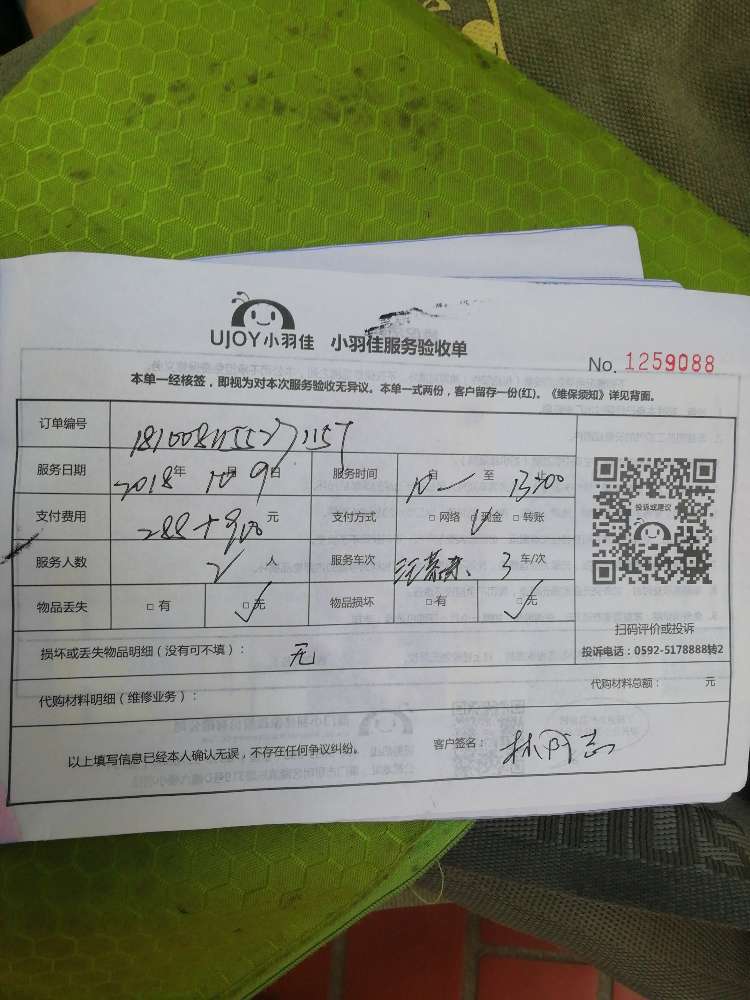 UJOY小羽佳 小羽佳服务验收单
No. 1259088
本单一经核签，即视为对本次服务验收无异议。本单一式两份，客户留存一份(红)。《维保须知》详见背面。
订单编号
服务日期 2018年 10月 9日 服务时间 自 10 至 13:00 止
支付费用 288+900 元 支付方式 □网络 ☑现金 □转账
服务人数 2 人 服务车次 3 车/次
物品丢失 □有 ☑无 物品损坏 □有 ☑无
投诉或建议
扫码评价或投诉
投诉电话：0592-5178888转2
损坏或丢失物品明细（没有可不填）： 无
代购材料明细（维修业务）： 代购材料总额： 元
以上填写信息已经本人确认无误，不存在任何争议纠纷。 客户签名： 林阿志